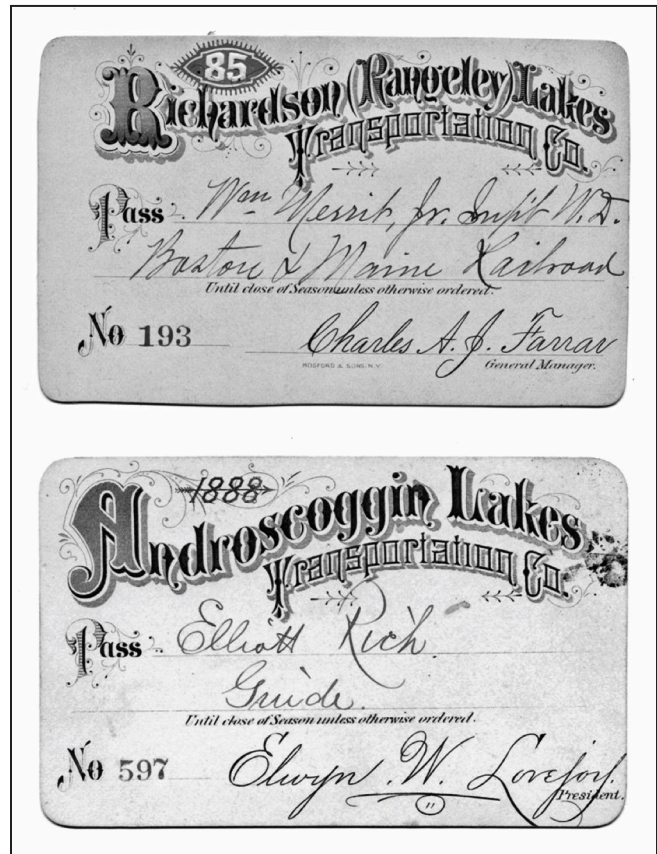 85
Richardson (Rangeley) Lakes
Transportation Co.
Pass Wm Merrit, Jr. Supt W. D.
Boston & Maine Railroad
Until close of Season unless otherwise ordered.
No 193 Charles A. J. Farrar
MOSFORD & SONS, N.Y.
General Manager.
1888
Androscoggin Lakes
Transportation Co.
Pass Elliott Rich
Guide.
Until close of Season unless otherwise ordered.
No 597 Elwyn W. Lovejoy.
President.